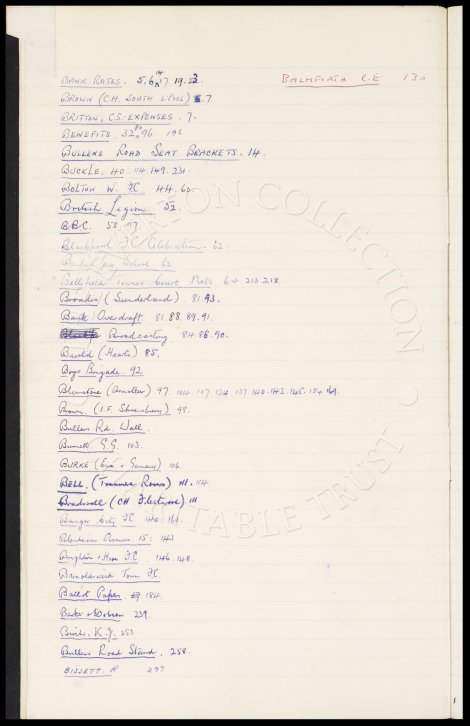 BANK RATES. 5.6.14.17 19.23.
BALMFORTH C.E. 130
BROWN (C.H. SOUTH L'POOL) 7.
BRITTON, C.S. EXPENSES. 7.
BENEFITS. 32. 96. 196
BULLENS ROAD SEAT BRACKETS. 14.
BUCKLE. 40. 114. 149. 231.
BOLTON W. F.C. 44. 60.
British Legion 52.
B.B.C. 53. 117
Blackpool F.C. Celebration. 62.
School 62
Bellefield Tennis Court Nets 64. 213. 218.
Broadis (Sunderland). 81. 93.
Bank Overdraft 81. 88. 89. 91.
Broadcasting 84. 86. 90.
Bauld (Hearts) 85.
Boys Brigade. 92
Blunstone (Amateur) 97. 104. 107. 134. 137. 140. 143. 145. 154. 169.
Brown (I.F. Shrewsbury) 98.
Bullens Rd. Wall.
Burnett, G.G. 103.
BURKE (Eire v Germany) 106
BELL. (Tranmere Rovers) 111. 114
Bradwell (CH Fleetwood) 111
Bangor City F.C. 140. 161.
Blenheim Avenue. 15. 143
Brighton & Hove F.C 146. 148.
Barnoldswick Town F.C.
Ballot Papers 184.
Barker & Dobson 239.
Birch. K.J. 253
Bullens Road Stand. 258.
BISSETT R 297
EVERTON COLLECTION CHARITABLE TRUST